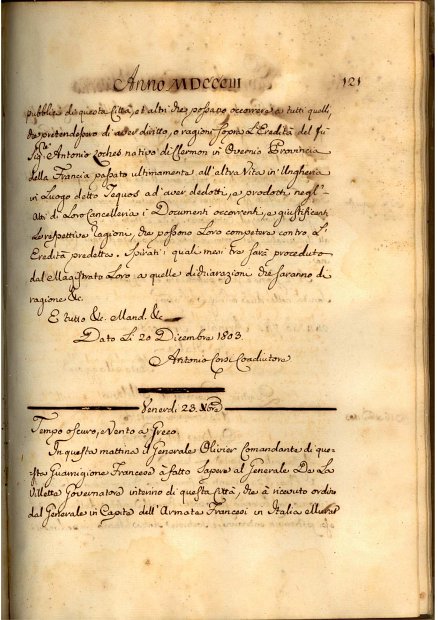 Anno MDCCCIII 121
pubblici di questa Città, et altri che possano occorrere a tutti quelli,
che pretendessero di aver diritto, o ragioni sopra L'Eredità del fu
Sig.re Antonio Coches nativo di Clermon in Overnio Provincia
della Francia passato ultimamente all'altra Vita in Ungheria
in Luogo detto Jeguos ad aver dedotti, e prodotti negl'
Atti di Loro Cancelleria i Documenti occorrenti, e giustificanti
Le respettive Ragioni, che possono Loro competere contro L'
Eredità predetta. Spirati i quali mesi tre sarà proceduto
dal Magistrato Loro a quelle dichiarazioni che saranno di
ragione &c.
E tutto &c. Mand. &c.
Dato Li 20 Dicembre 1803.
Antonio Corsi Coadiutore
Venerdì 23.
Tempo oscuro, e Vento a Greco.
In questa mattina il Generale Olivier Comandante di que-
sta Guarnigione Francese à fatto sapere al Generale De La
Villette Governatore interino di questa Città, che à ricevuto ordine
dal Generale in Capite dell'Armata Francesi in Italia